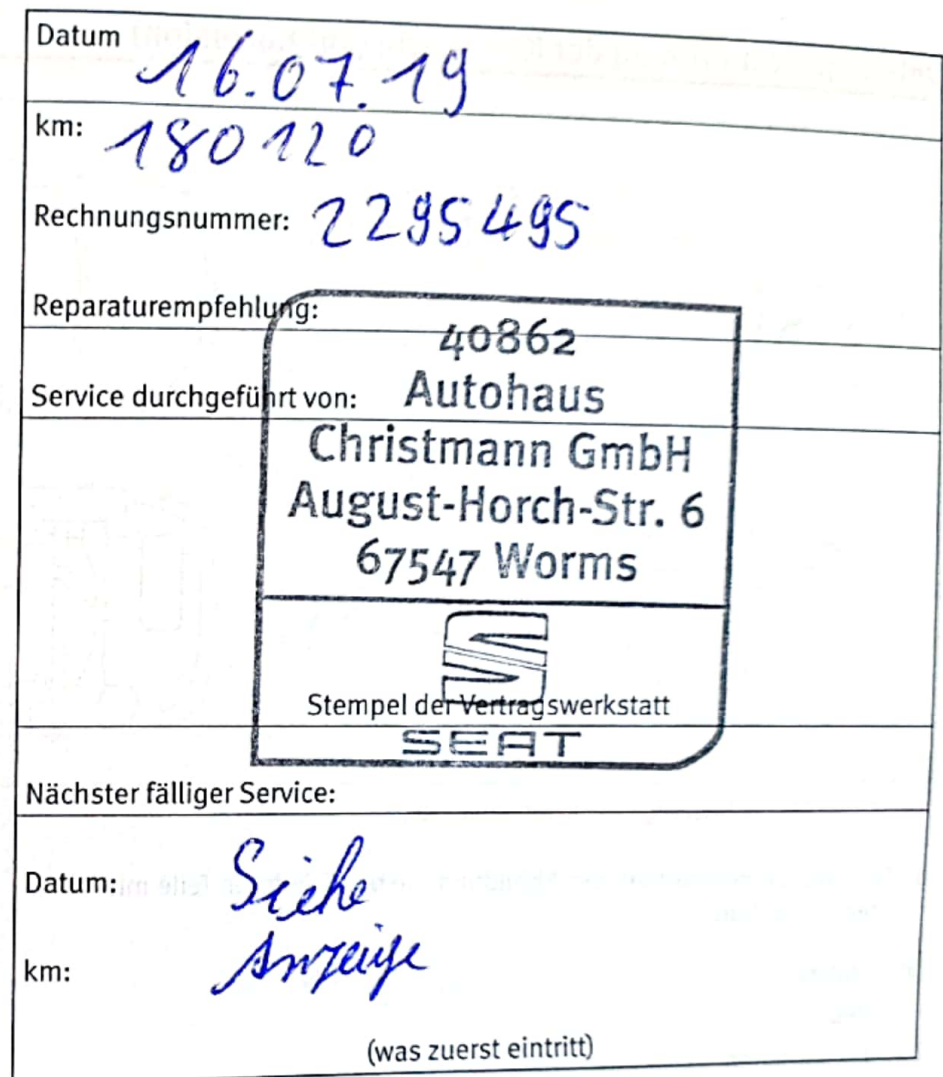 Datum 16.07.19
km: 180120
Rechnungsnummer: 2295495
Reparaturempfehlung:
40862
Service durchgeführt von: Autohaus
Christmann GmbH
August-Horch-Str. 6
67547 Worms
Stempel der Vertragswerkstatt
SEAT
Nächster fälliger Service:
Datum: Siehe
km: Anzeige
(was zuerst eintritt)